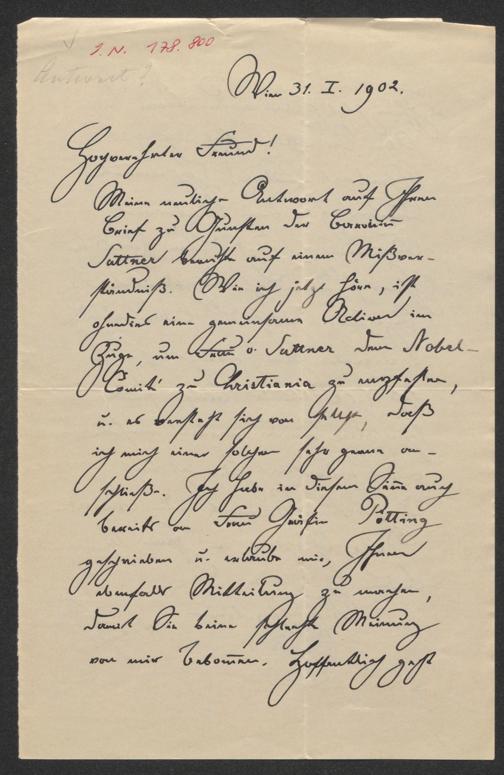 J. N. 178.800
Antwort?
Wien 31. I. 1902.
Hochverehrter Freund!
Meine neuliche Antwort auf Ihren
Brief zu Gunsten der Baronin
Suttner beruhte auf einem Mißver-
ständniß. Wie ich jetzt höre, ist
ohndies eine gemeinsame Action im
Zuge, um Frau v. Suttner dem Nobel-
Comité zu Christiania zu empfehlen,
u. es versteht sich von selbst, daß
ich mich einer solchen sehr gerne an-
schließe. Ich habe in diesem Sinne auch
bereits an Frau Gräfin Pötting
geschrieben u. erlaube mir, Ihnen
ebenfalls Mitteilung zu machen,
damit Sie keine schlechte Meinung
von mir bekommen. Hoffentlich geht